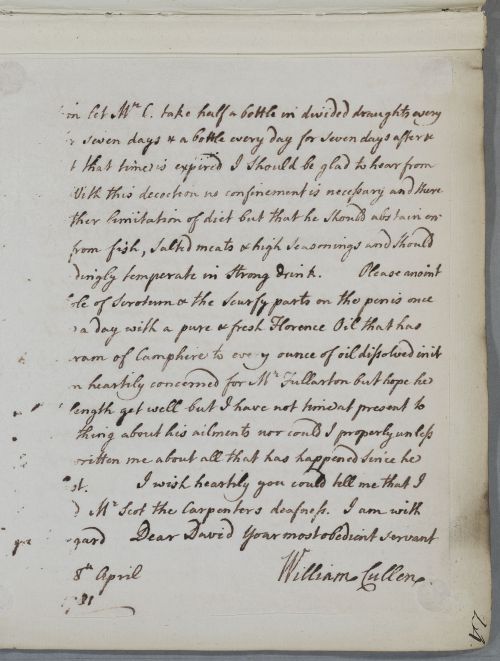 on let Mr. C. take half a bottle in divided draughts every
r seven days & a bottle every day for seven days after &
t that time is expired I should be glad to hear from
With this decoction no confinement is necessary and there
ther limitation of diet but that he should abstain en
from fish, salted meats & high seasonings and should
dingly temperate in strong drink. Please anoint
ole of scrotum & the scurfy parts on the penis once
a day with a pure & fresh Florence Oil that has
ram of Camphire to every ounce of oil dissolved in it
m heartily concerned for Mr. Fullarton but hope he
length get well but I have not time at present to
thing about his ailments nor could I properly unless
written me about all that has happened since he
st. I wish heartily you could tell me that I
d Mr Scot the Carpenters deafness. I am with
gard Dear David Your most obedient servant
8th April William Cullen.
81